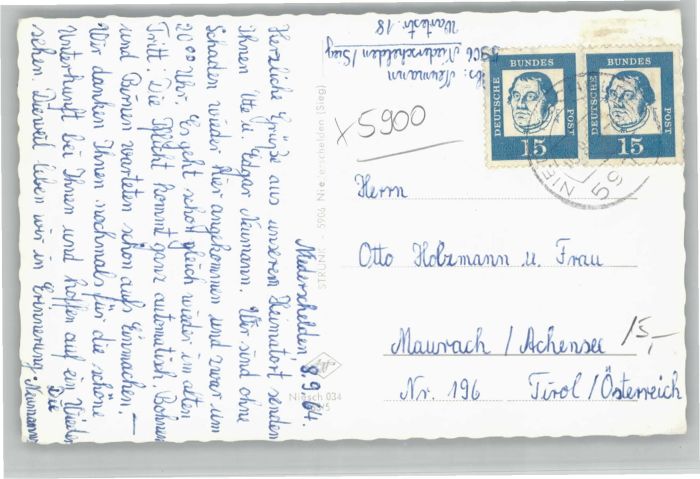 Niederschelden 8.9.64.
Herzliche Grüße aus unserem Heimatort senden
Ihnen Ute u. Edgar Neumann. Wir sind ohne
Schaden wieder hier angekommen und zwar um
20⁰⁰ Uhr. Es geht schon gleich wieder im alten
Tritt. Die Pflicht kommt ganz automatisch. Bohnen
und Birnen warteten schon aufs Einmachen. —
Wir danken Ihnen nochmals für die schöne
Unterkunft bei Ihnen und hoffen auf ein Wieder
sehen. Derweil leben wir in Erinnerung. Die Neumanns
STRUNK - 5906 Niederschelden (Sieg)
Niesch 034
Abs.: Neumann
5906 Niederschelden/Sieg
Wartestr. 18
DEUTSCHE BUNDESPOST 15
DEUTSCHE BUNDESPOST 15
x 5900
Herrn
Otto Holzmann u. Frau
Maurach / Achensee
Nr. 196 Tirol / Österreich
15,-